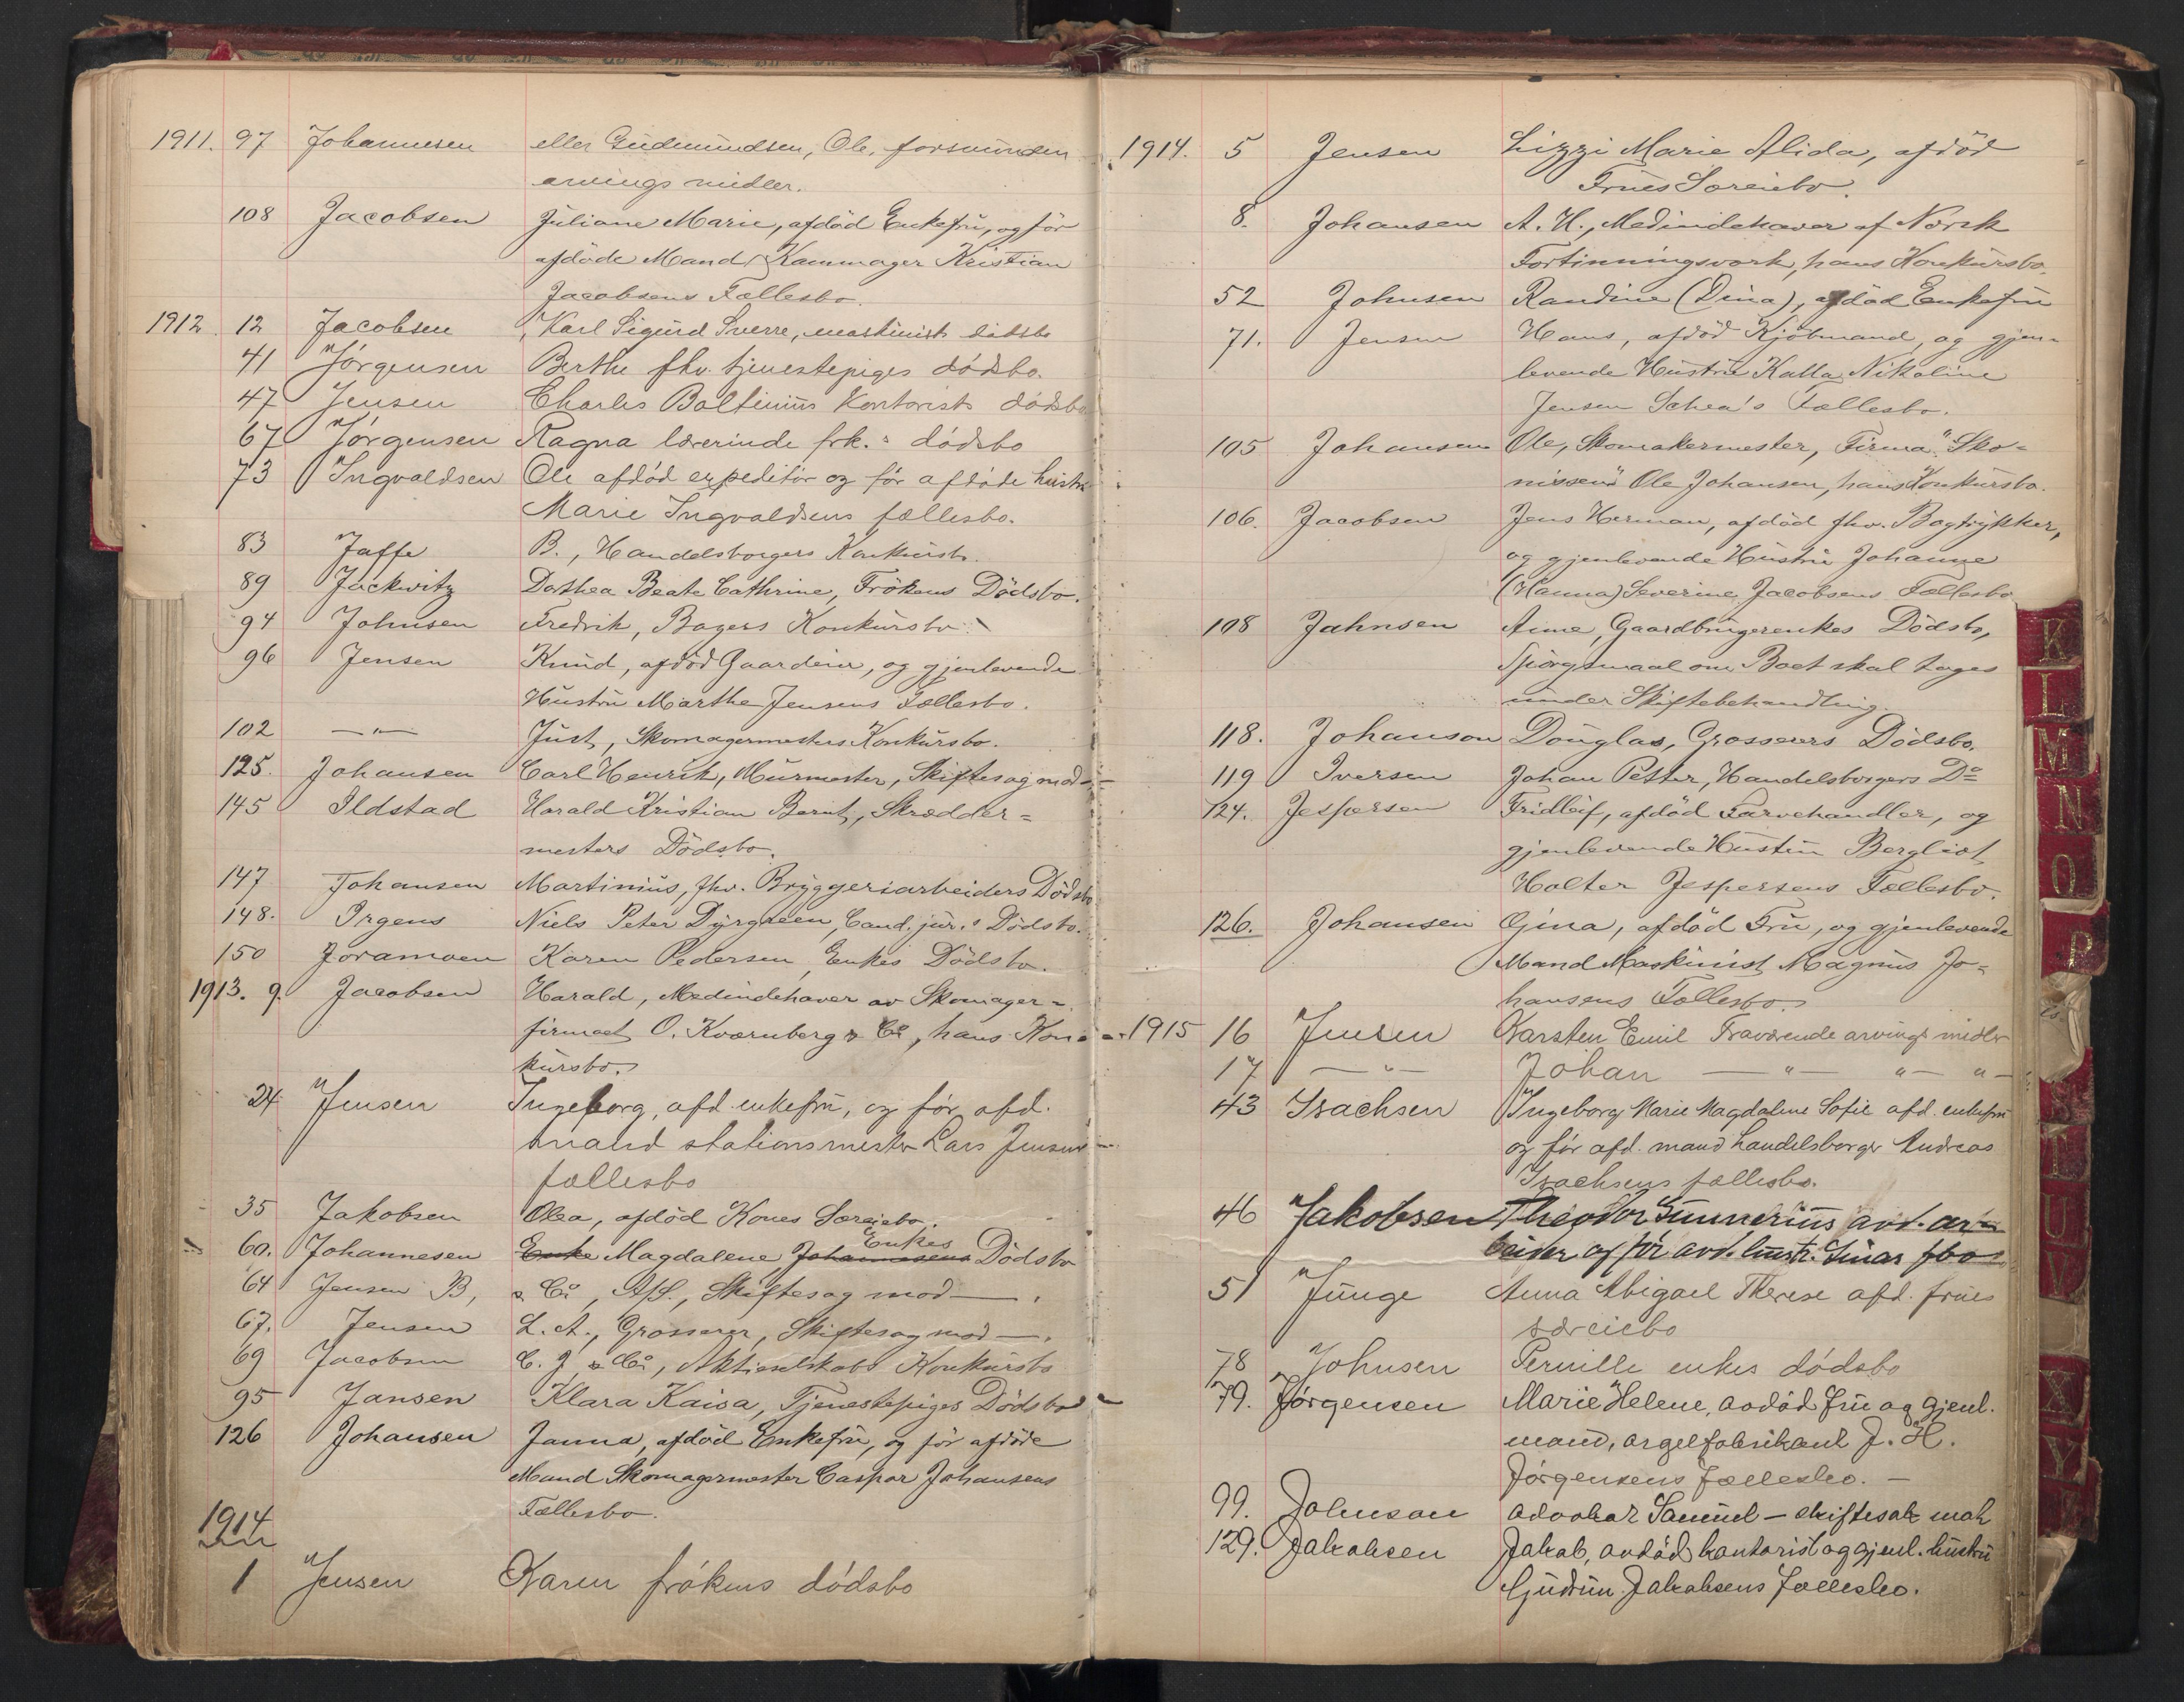 1911. 97 Johannesen eller Gudmundsen, Ole, forsvunden
arvings midler.
108 Jacobsen Juliane Marie, afdöd Enkefru, og för
afdöde Mand, Kammager Kristian
Jacobsens Fællesbo.
1912 12 Jacobsen Karl Sigurd Sverre, maskinists dödsbo
41 Jörgensen Berthe fhv. tjenestepiges dödsbo.
47 Jensen Charles Boltinius Kontorists dödsbo
67 Jörgensen Ragna lærerinde frk.s dödsbo
73 Ingvaldsen Ole afdöd expeditör og för afdöde hustru
Marie Ingvaldsens fællesbo.
83 Jaffe B., Handelsborgers Konkursb.
89 Jackwitz Dorthea Beate Cathrine, Frökens Dödsbo.
94 Johnsen Fredrik, Bagers Konkursbo.
96 Jensen Knud, afdöd Gaardeier, og gjenlevende
Hustru Marthe Jensens Fællesbo.
102 —"— Just, Skomagermesters Konkursbo.
125. Johansen Carl Henrik, Murmester, Skiftesag mod —
145 Ildstad Harald Kristian Bernt, Skrædder=
mesters Dödsbo.
147 Johansen Martinius, fhv. Bryggeriarbeiders Dödsbo
148. Irgens Niels Peter Dyrgreen, Cand. jur.s Dödsbo.
150 Joramoen Karen Pedersen, Enkes Dödsbo.
1913. 9. Jacobsen Harald, Medindehaver av Skomager=
firmaet O. Kværnberg & Co, hans Kon=
kursbo.
24 Jensen Ingeborg, afd. enkefru, og för afd.
mand stationsmester Lars Jensens
fællesbo
35 Jakobsen Olea, afdöd Kones Særeiebo.
Enkes
60. Johannesen Enke Magdalene Johannesens Dödsbo
64 Jensen B, & Co, A/S., Skiftesag mod —.
67. Jensen L. A., Grosserer, Skiftesag mod —.
69 Jacobsen C. J. & Co, Aktieselskabs Konkursbo
95 Jansen Klara Kaisa, Tjenestepiges Dödsbo
126 Johansen Janna, afdöd Enkefru, og för afdöde
Mand Skomagermester Caspar Johansens
Fællesbo.
1914
1 Jensen Karen frökens dödsbo
1914. 5 Jensen Lizzi Marie Alida, afdöd
Frues Særeiebo.
8. Johansen A. H., Medindehaver af Norsk
Fortinningsverk, hans Konkursbo.
52 Johnsen Randine (Dina), afdöd Enkefru
71. Jensen Hans, afdöd Kjöbmand, og gjen=
levende Hustru Kalla Nikoline
Jensen Schea's Fællesbo.
105 Johansen Ole, Skomakermester, Firma "Sko=
nissen" Ole Johansen, hans Konkursbo.
106. Jacobsen Jens Herman, afdöd fhv. Bogtrykker,
og gjenlevende Hustru Johanne
(Hanna) Severine Jacobsens Fællesbo
108 Jahnsen Aime, Gaardbrugerenkes Dödsbo,
Spörgsmaal om Boet skal tages
under Skiftebehandling.
118. Johanson Douglas, Grosserers Dödsbo.
119 Iversen Johan Petter, Handelsborgers Do
124. Jespersen Fridleif, afdöd Farvehandler, og
gjenlevende Hustru Bergliot
Holter Jespersens Fællesbo.
126. Johansen Gina, afdöd Fru, og gjenlevende
Mand Maskinist Magnus Jo=
hansens Fællesbo.
1915 16 Jensen Karsten Emil Fraværende arvings midler
17 —"— Johan —"— "— "—
43 Isachsen Ingeborg Marie Magdalene Sofie afd. enkefru
og för afd. mand handelsborger Andreas
Isachsens fællesbo.
46 Jakobsen Theodor Gunnerius avd. ar=
beider og för avd. hustr. Linas fbo
51 Junge Anna Abigael Therese afd. frues
særeiebo
78 Johnsen Pernille enkes dödsbo
79. Jörgensen Marie Helene, avdöd fru og gjenl.
mand, orgelfabrikant J. H.
Jörgensens fællesbo. —
99. Johnson advokat Samuel — skiftesak mot
129. Jakobsen Jakob, avdöd kontorist og gjenl. hustru
Gudrun Jakobsens fællesbo.
K
L
M
N
O
P
T
U
V
X
Y